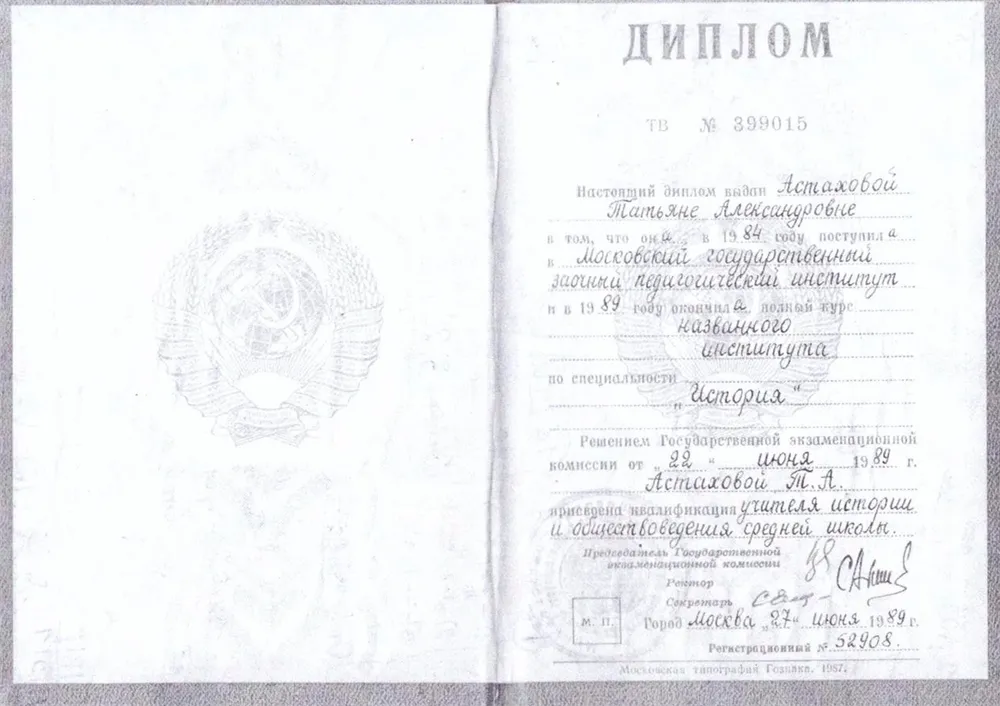 ДИПЛОМ
ТВ № 399015
Настоящий диплом выдан Астаховой
Татьяне Александровне
в том, что она в 1984 году поступила
в Московский государственный
заочный педагогический институт
и в 1989 году окончила полный курс
названного
института
по специальности
„История“
Решением Государственной экзаменационной
комиссии от „22“ июня 1989 г.
Астаховой Т. А.
присвоена квалификация учителя истории
и обществоведения средней школы.
Председатель Государственной
экзаменационной комиссии
Ректор
Секретарь
М. П.
Город Москва „27“ июня 1989 г.
Регистрационный № 52908.
Московская типография Гознака. 1987.